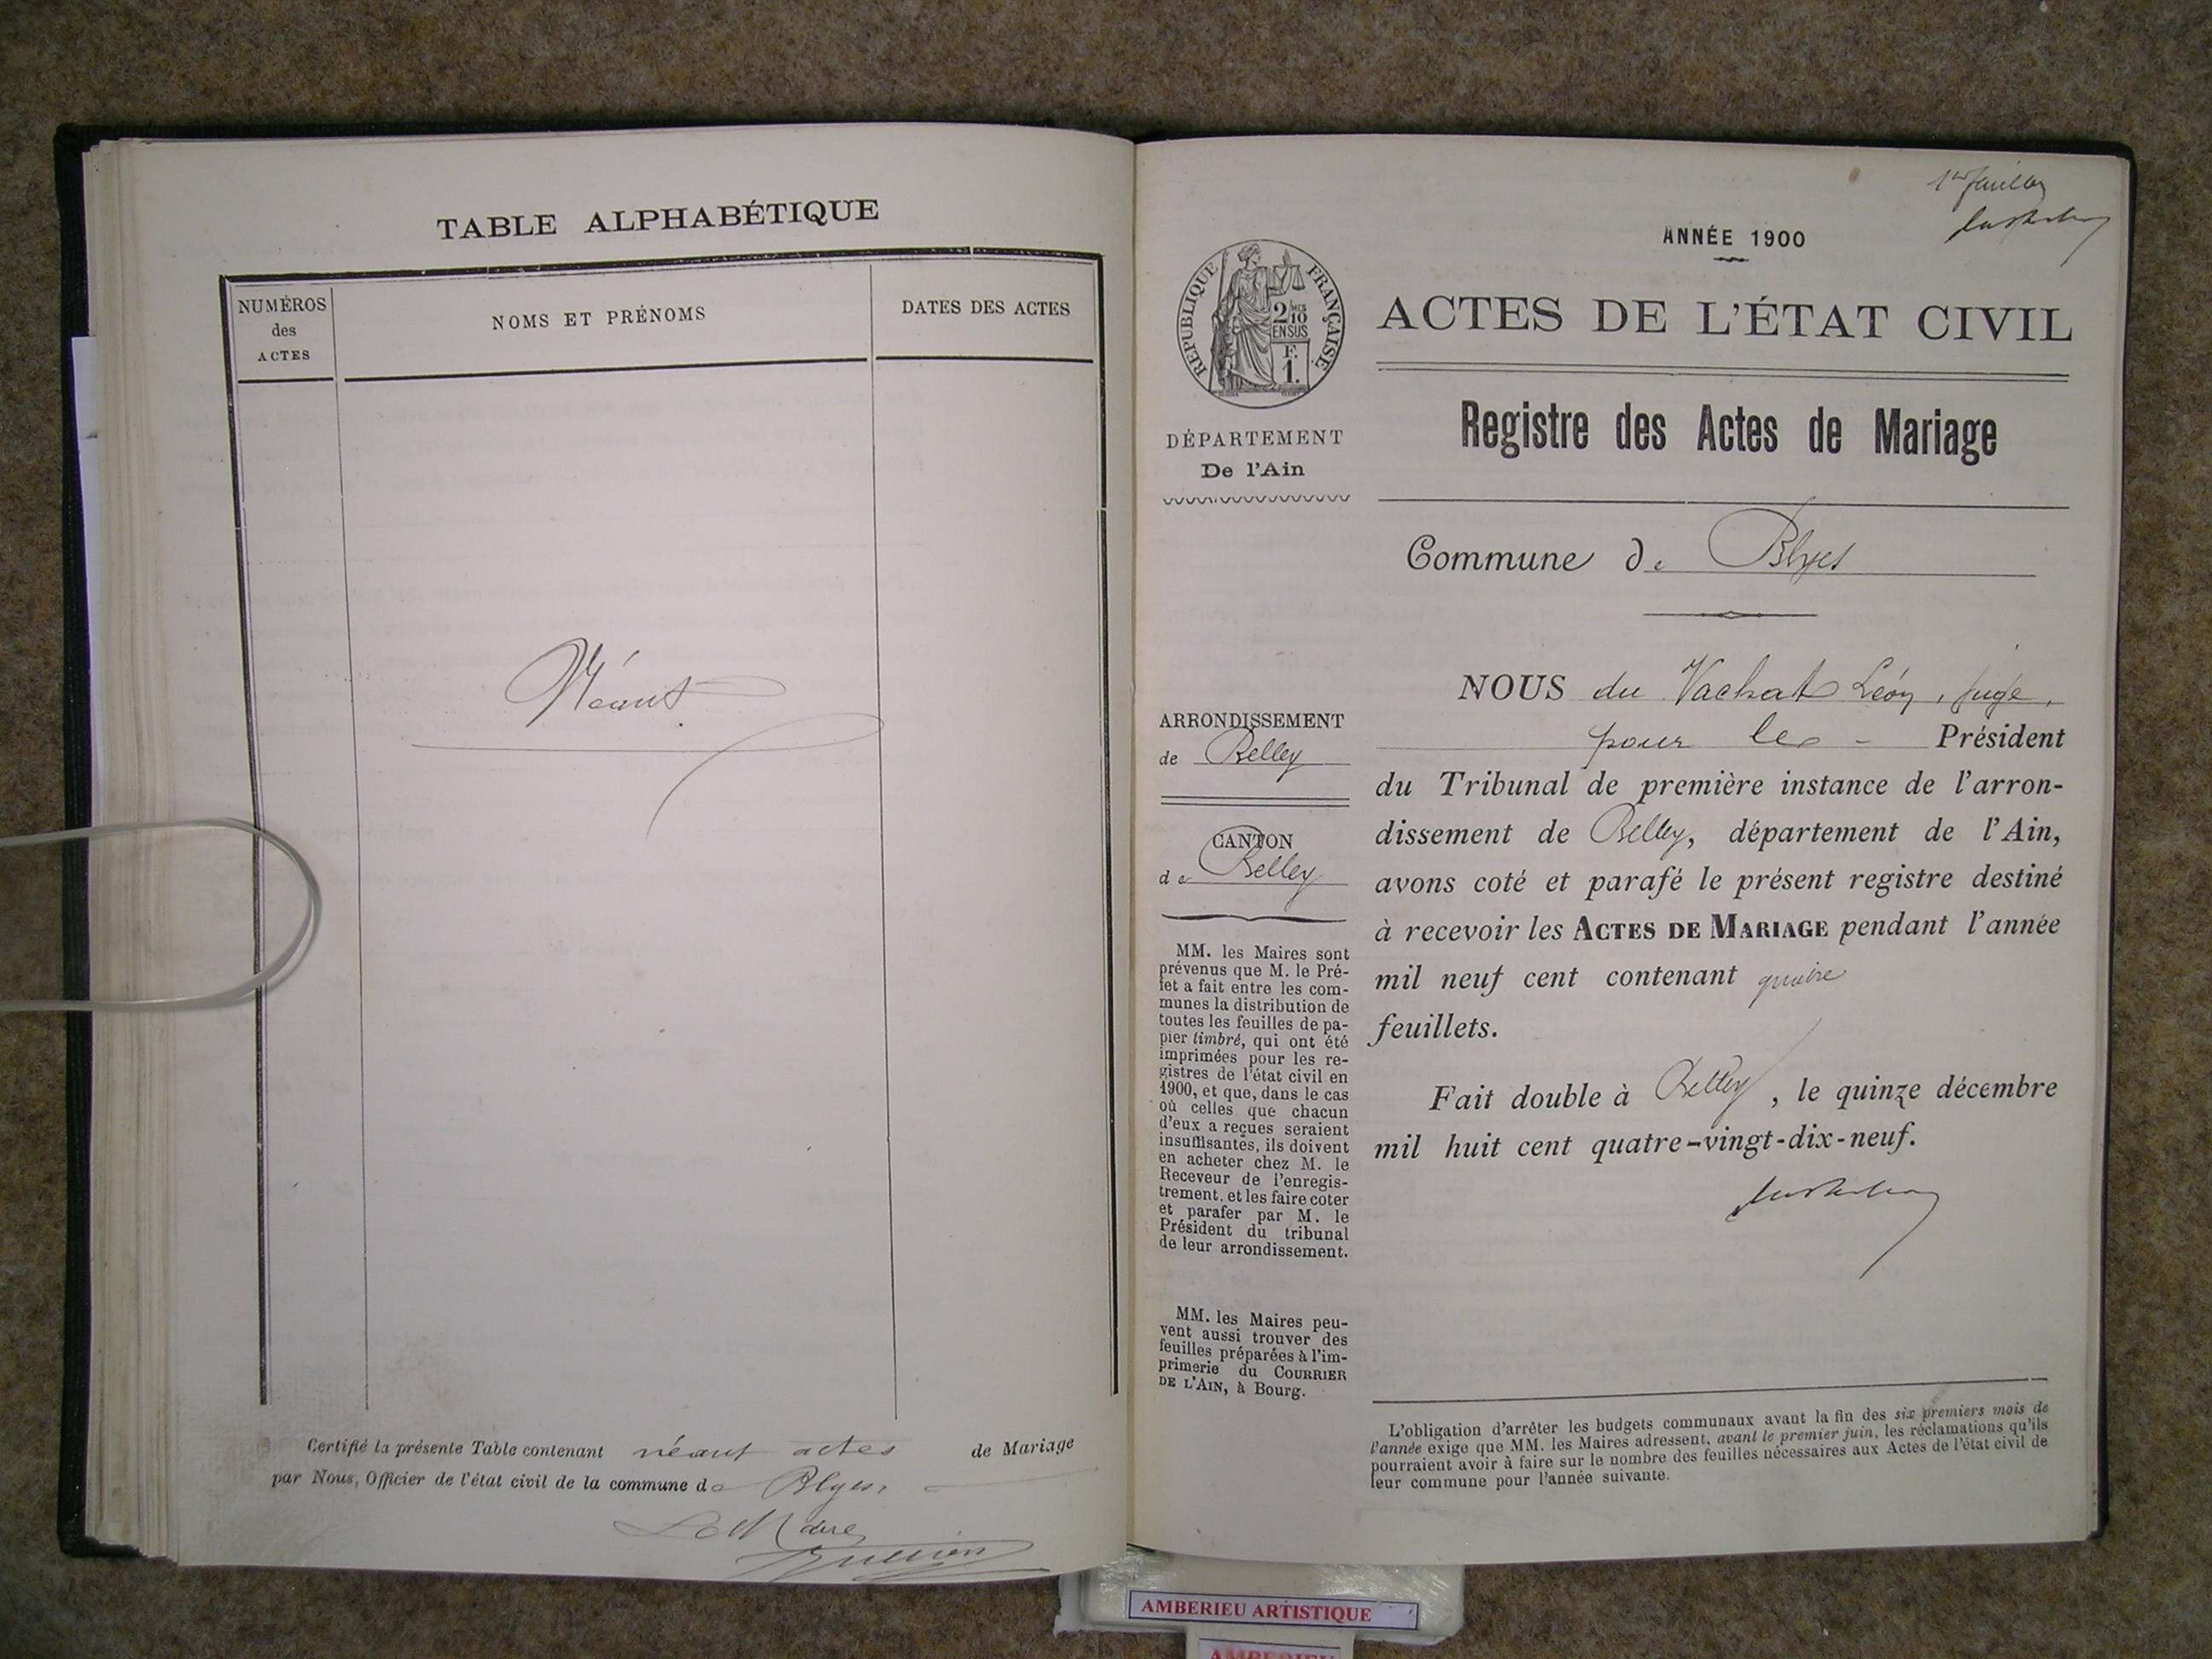 TABLE ALPHABÉTIQUE
NUMÉROS
des
ACTES
NOMS ET PRÉNOMS
DATES DES ACTES
Néant
Certifié la présente Table contenant néant actes de Mariage
par Nous, Officier de l'état civil de la commune de Blyes
Le Maire
1er feuillet
ANNÉE 1900
RÉPUBLIQUE FRANÇAISE
2/10
EN SUS
F.
1.
ACTES DE L'ÉTAT CIVIL
DÉPARTEMENT
De l'Ain
Registre des Actes de Mariage
Commune de Blyes
ARRONDISSEMENT
de Belley
CANTON
de Belley
MM. les Maires sont
prévenus que M. le Pré-
fet a fait entre les com-
munes la distribution de
toutes les feuilles de pa-
pier timbré, qui ont été
imprimées pour les re-
gistres de l'état civil en
1900, et que, dans le cas
où celles que chacun
d'eux a reçues seraient
insuffisantes, ils doivent
en acheter chez M. le
Receveur de l'enregis-
trement, et les faire coter
et parafer par M. le
Président du tribunal
de leur arrondissement.
MM. les Maires peu-
vent aussi trouver des
feuilles préparées à l'im-
primerie du COURRIER
DE L'AIN, à Bourg.
NOUS du Vachat Léon, juge,
pour le - Président
du Tribunal de première instance de l'arron-
dissement de Belley, département de l'Ain,
avons coté et parafé le présent registre destiné
à recevoir les ACTES DE MARIAGE pendant l'année
mil neuf cent contenant quatre
feuillets.
Fait double à Belley, le quinze décembre
mil huit cent quatre-vingt-dix-neuf.
L'obligation d'arrêter les budgets communaux avant la fin des six premiers mois de
l'année exige que MM. les Maires adressent, avant le premier juin, les réclamations qu'ils
pourraient avoir à faire sur le nombre des feuilles nécessaires aux Actes de l'état civil de
leur commune pour l'année suivante.
AMBERIEU ARTISTIQUE
AMBERIEU